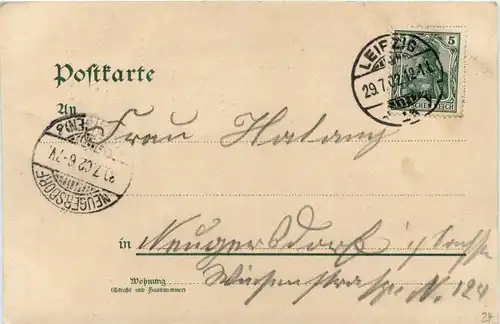 Postkarte
LEIPZIG
29.7.02.12-1
5
DEUTSCHES REICH
An
Frau Hatany
NEUGERSDORF
.7.02 6-7V
in Neugersdorf i/Sachsen
Wohnung
(Straße und Hausnummer)
Wiesenstrasse N. 124
24